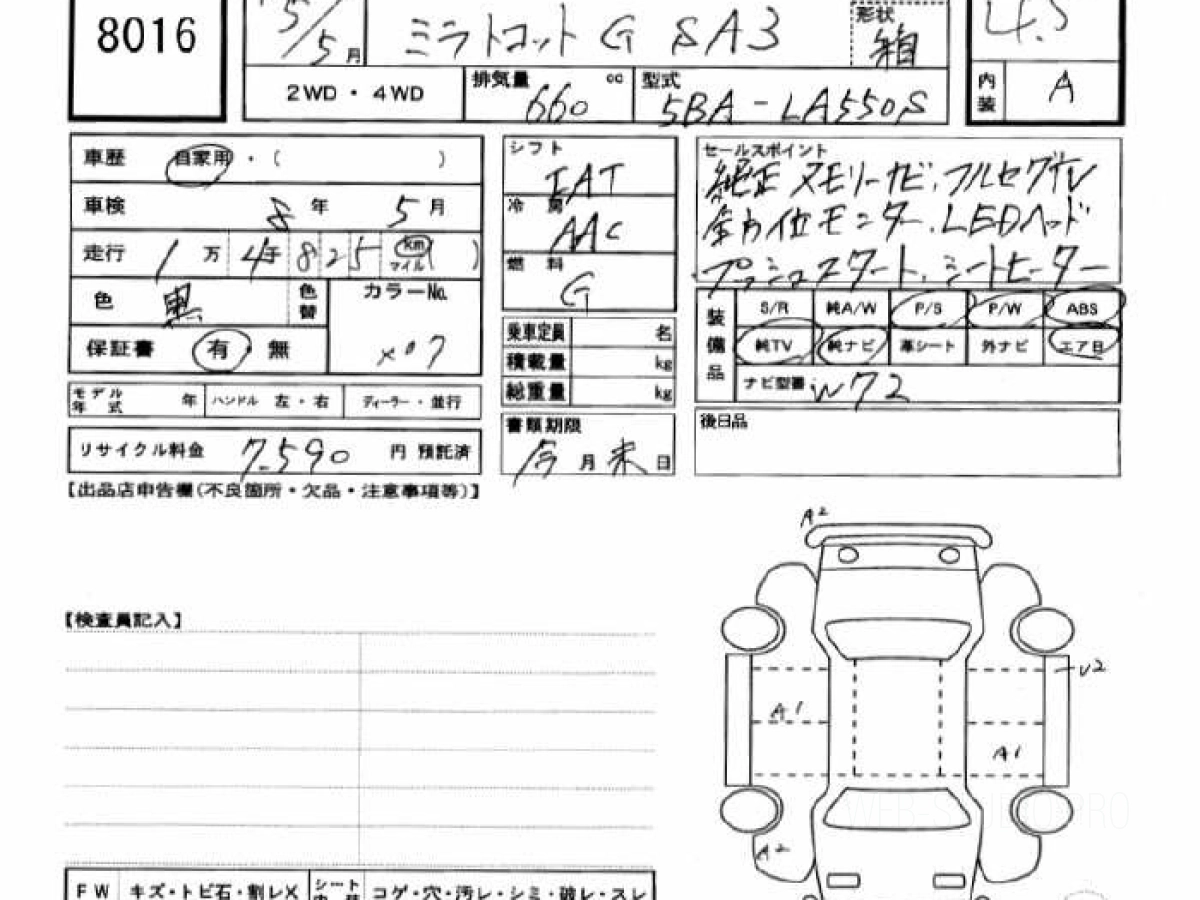 8016
5/5月
ミラトコット G SA3
形状
箱
4.5
2WD・4WD
排気量 cc
660
型式
5BA-LA550S
内装 A
車歴 自家用・( )
車検 8年 5月
走行 1万 4千 825 km マイル ( )
色 黒 色替
カラーNo.
X07
保証書 有・無
モデル年式 年 ハンドル 左・右 ディーラー・並行
リサイクル料金 7,590 円 預託済
シフト
IAT
冷房
AAC
燃料
G
乗車定員 名
積載量 kg
総重量 kg
書類期限
今月末日
セールスポイント
純正メモリーナビ、フルセグTV
全方位モニター、LEDヘッド
プッシュスタート、シートヒーター
装備品
S/R 純A/W P/S P/W ABS
純TV 純ナビ 革シート 外ナビ エアB
ナビ型番 W72
後日品
【出品店申告欄(不良箇所・欠品・注意事項等)】
【検査員記入】
A2
U2
A1
A1
A2
FW キズ・トビ石・割レX
シート コゲ・穴・汚レ・シミ・破レ・スレ